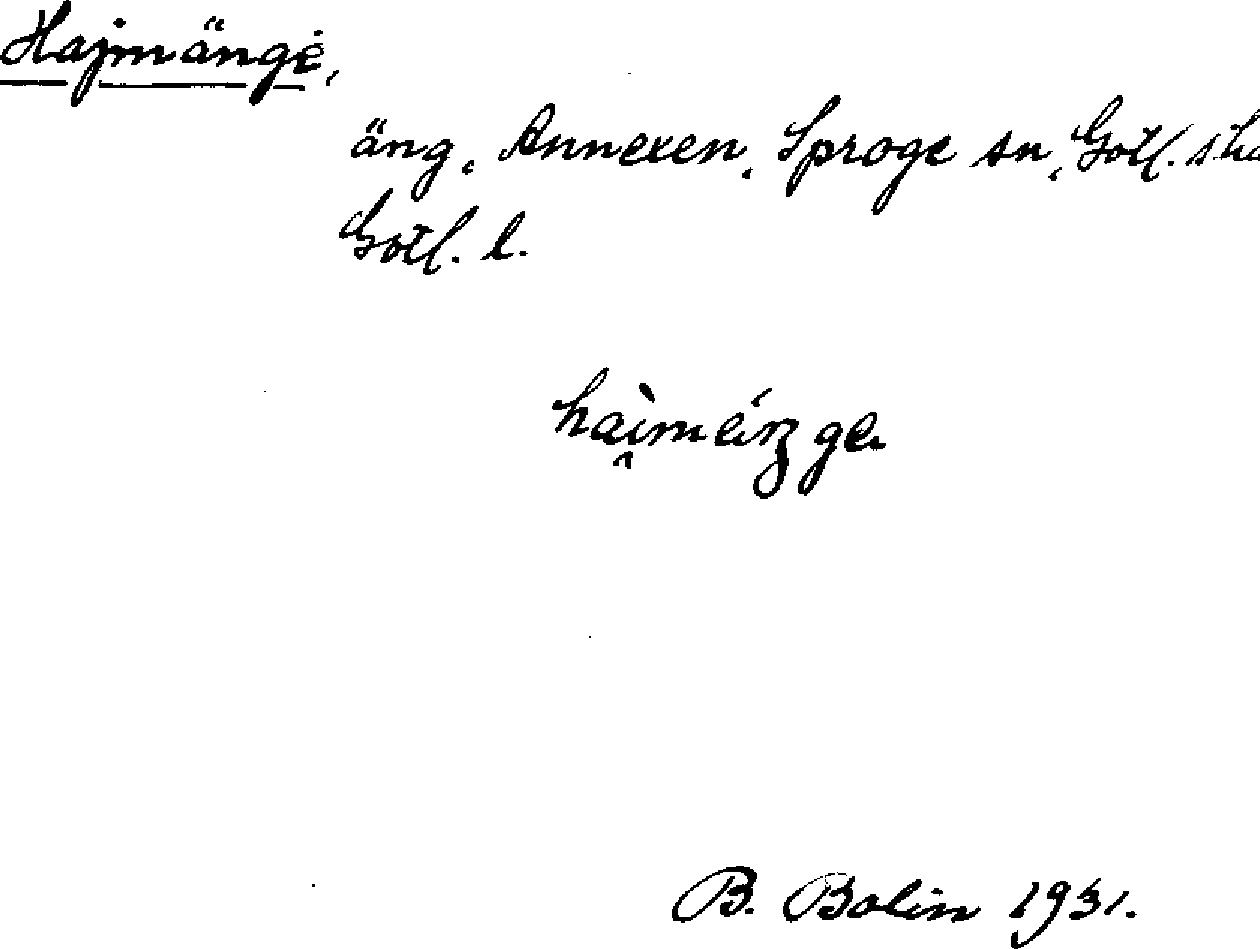 Hajmänge,
äng, Annexen, Sproge sn, Gotl. s
Gotl. l.
B. Bolin 1931.